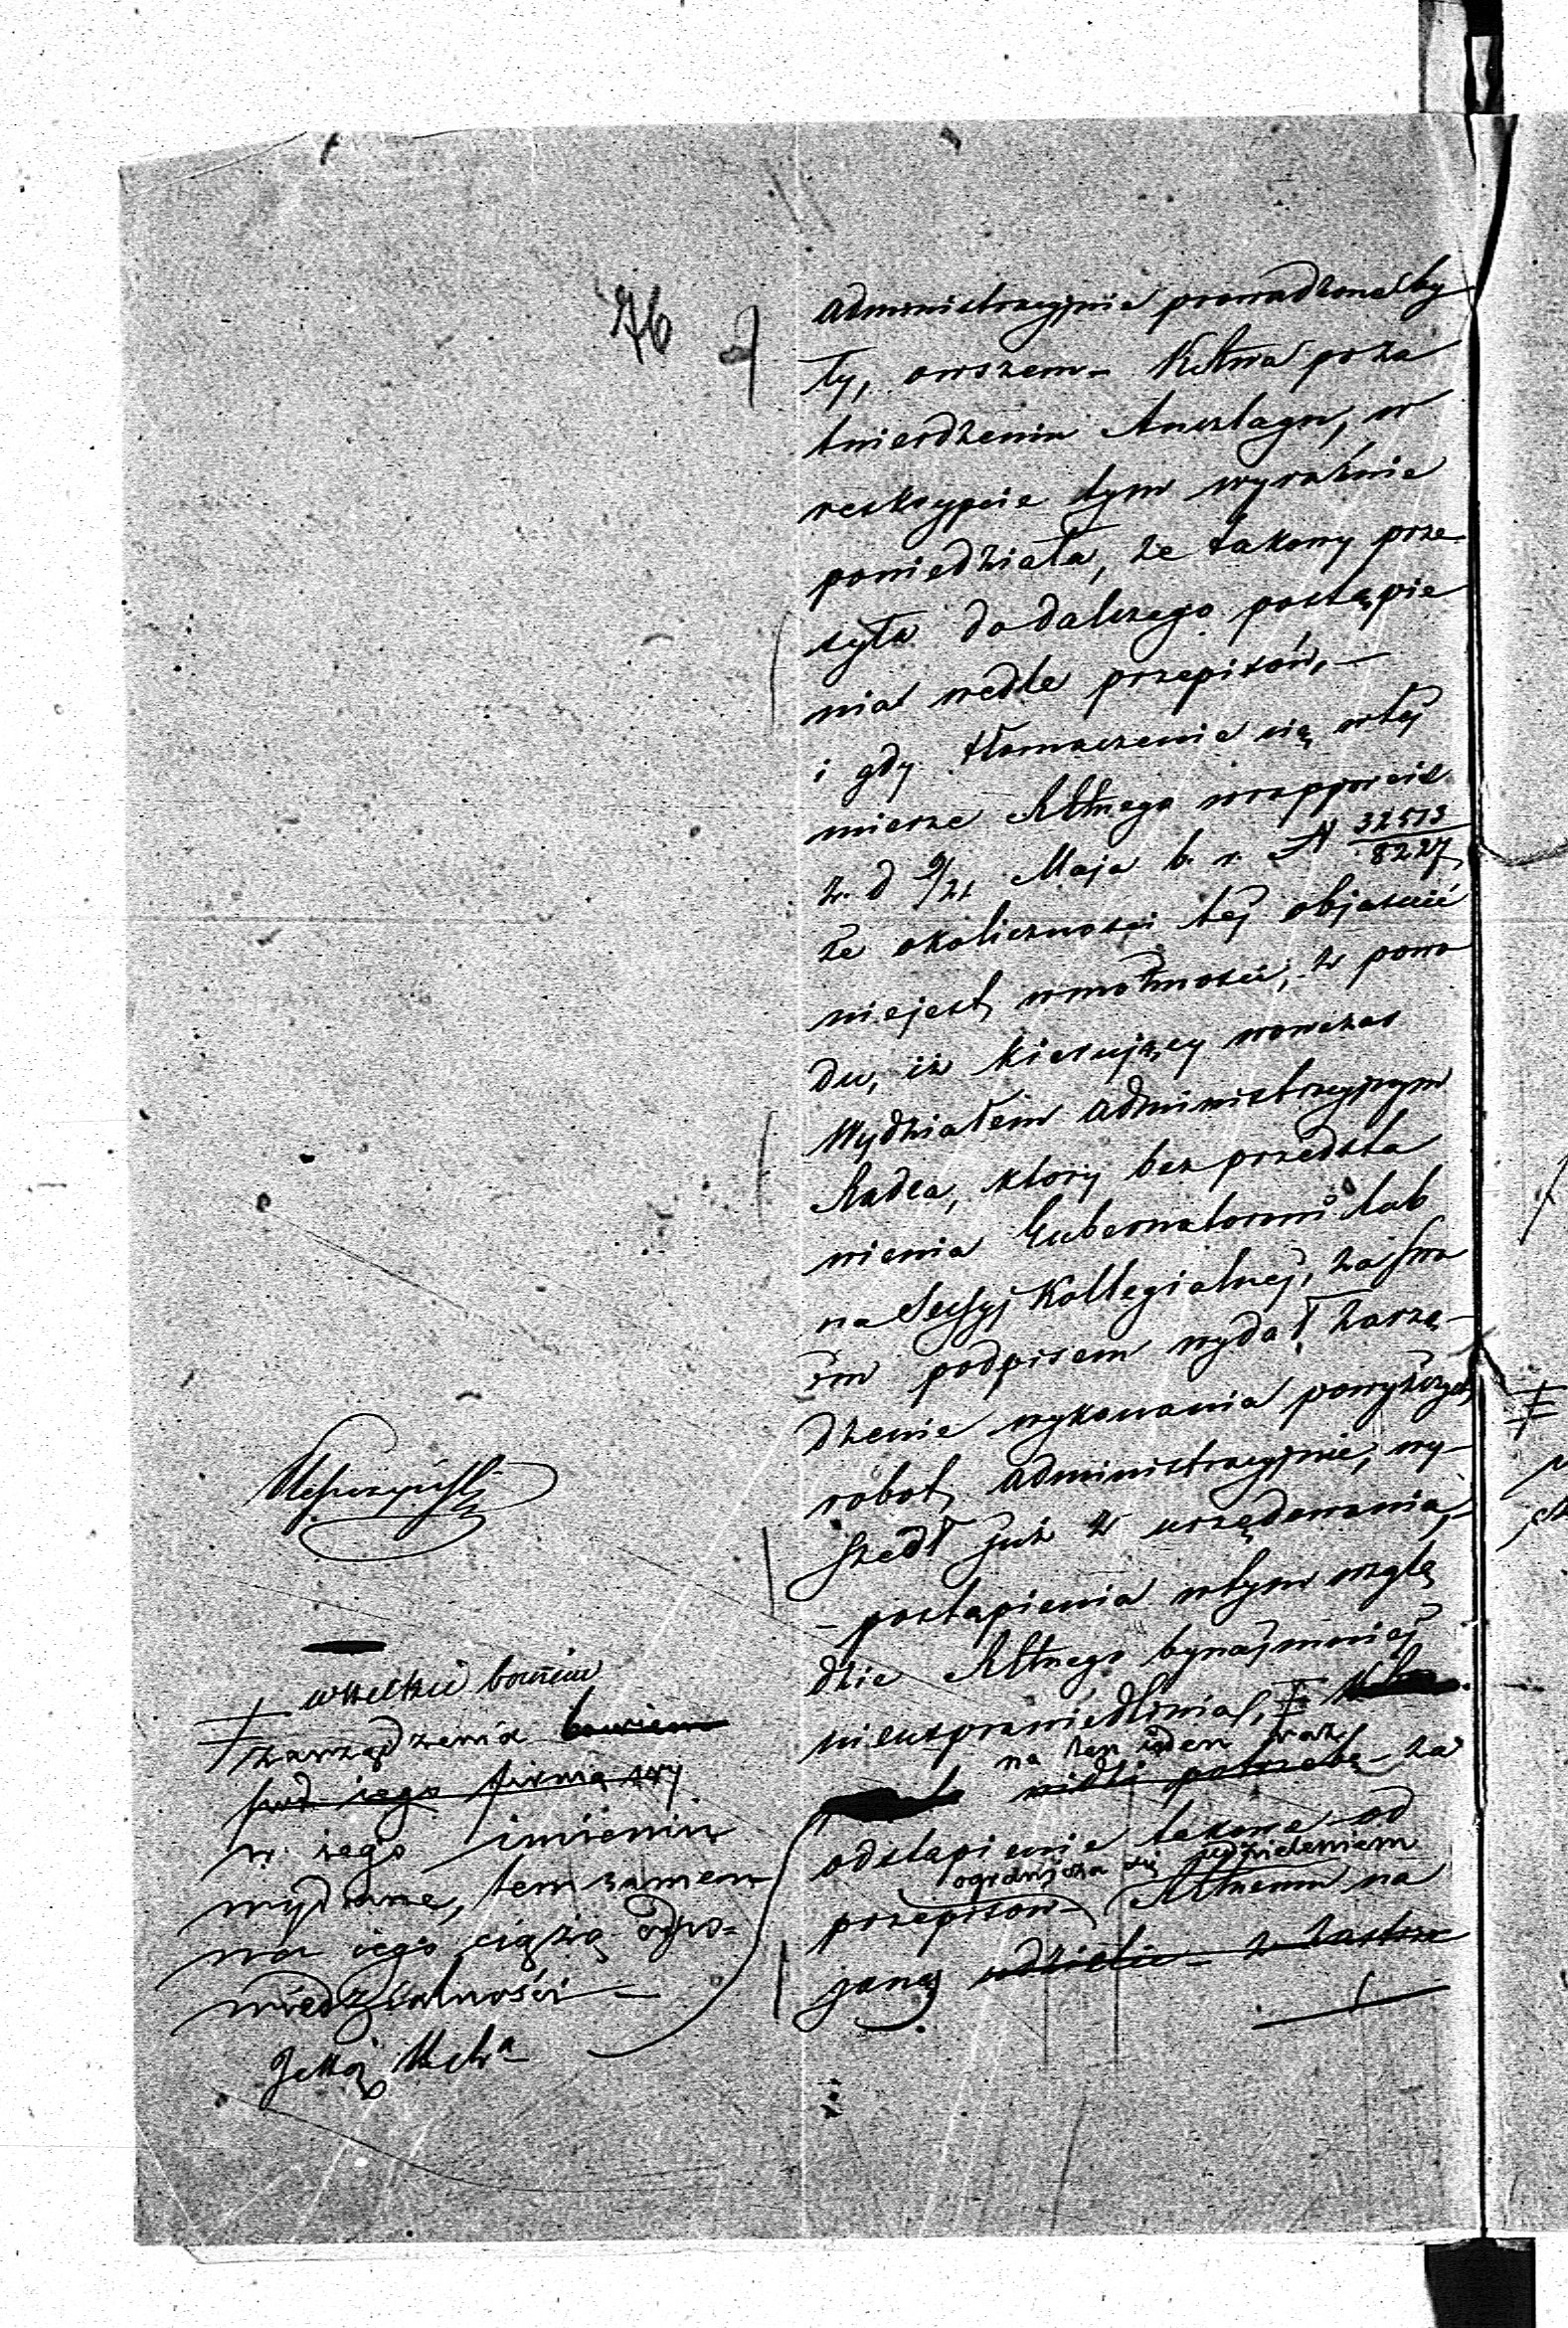 76
administracyjnie prowadzone by
ły, owszem - KRSwa po za
twierdzeniu Anszlagu, w
reskrypcie tym wyraźnie
powiedziała, że takowy prze
syła do dalszego postąpie
nia wedle przepisów, —
i gdy tłomaczenie się w tej
mierze RGłnego w rapporcie
z d 9/21 Maja b. r. N 32513/8227
że okoliczności tej objaśnić
niejest w możności, z powo
du, iż kierujący wowczas
Wydziałem administracyjnym
Radca, ktory bez przedsta
wienia Gubernatorowi lub
na Sessyj Kollegialnej, za swo
im podpisem wydał zarzą-
dzenie wykonania powyższych
robot administracyjnie, wy-
szedł już z urzędowania,
- postąpienia w tym wzglę
dzie RGłnego bynajmniej
nieusprawiedliwia,
na ten jeden raz
widzi potrzebę za
odstąpienie takowe od
ogranicza się udzieleniem
przepisow RGłnemu na
ganę udzielić z zastrze
wszelkie bowiem
zarządzenia bowiem
pod jego firmą wy
w jego imieniu
wydane, tem samem
na jego ciążą odpo-
wiedzialności —